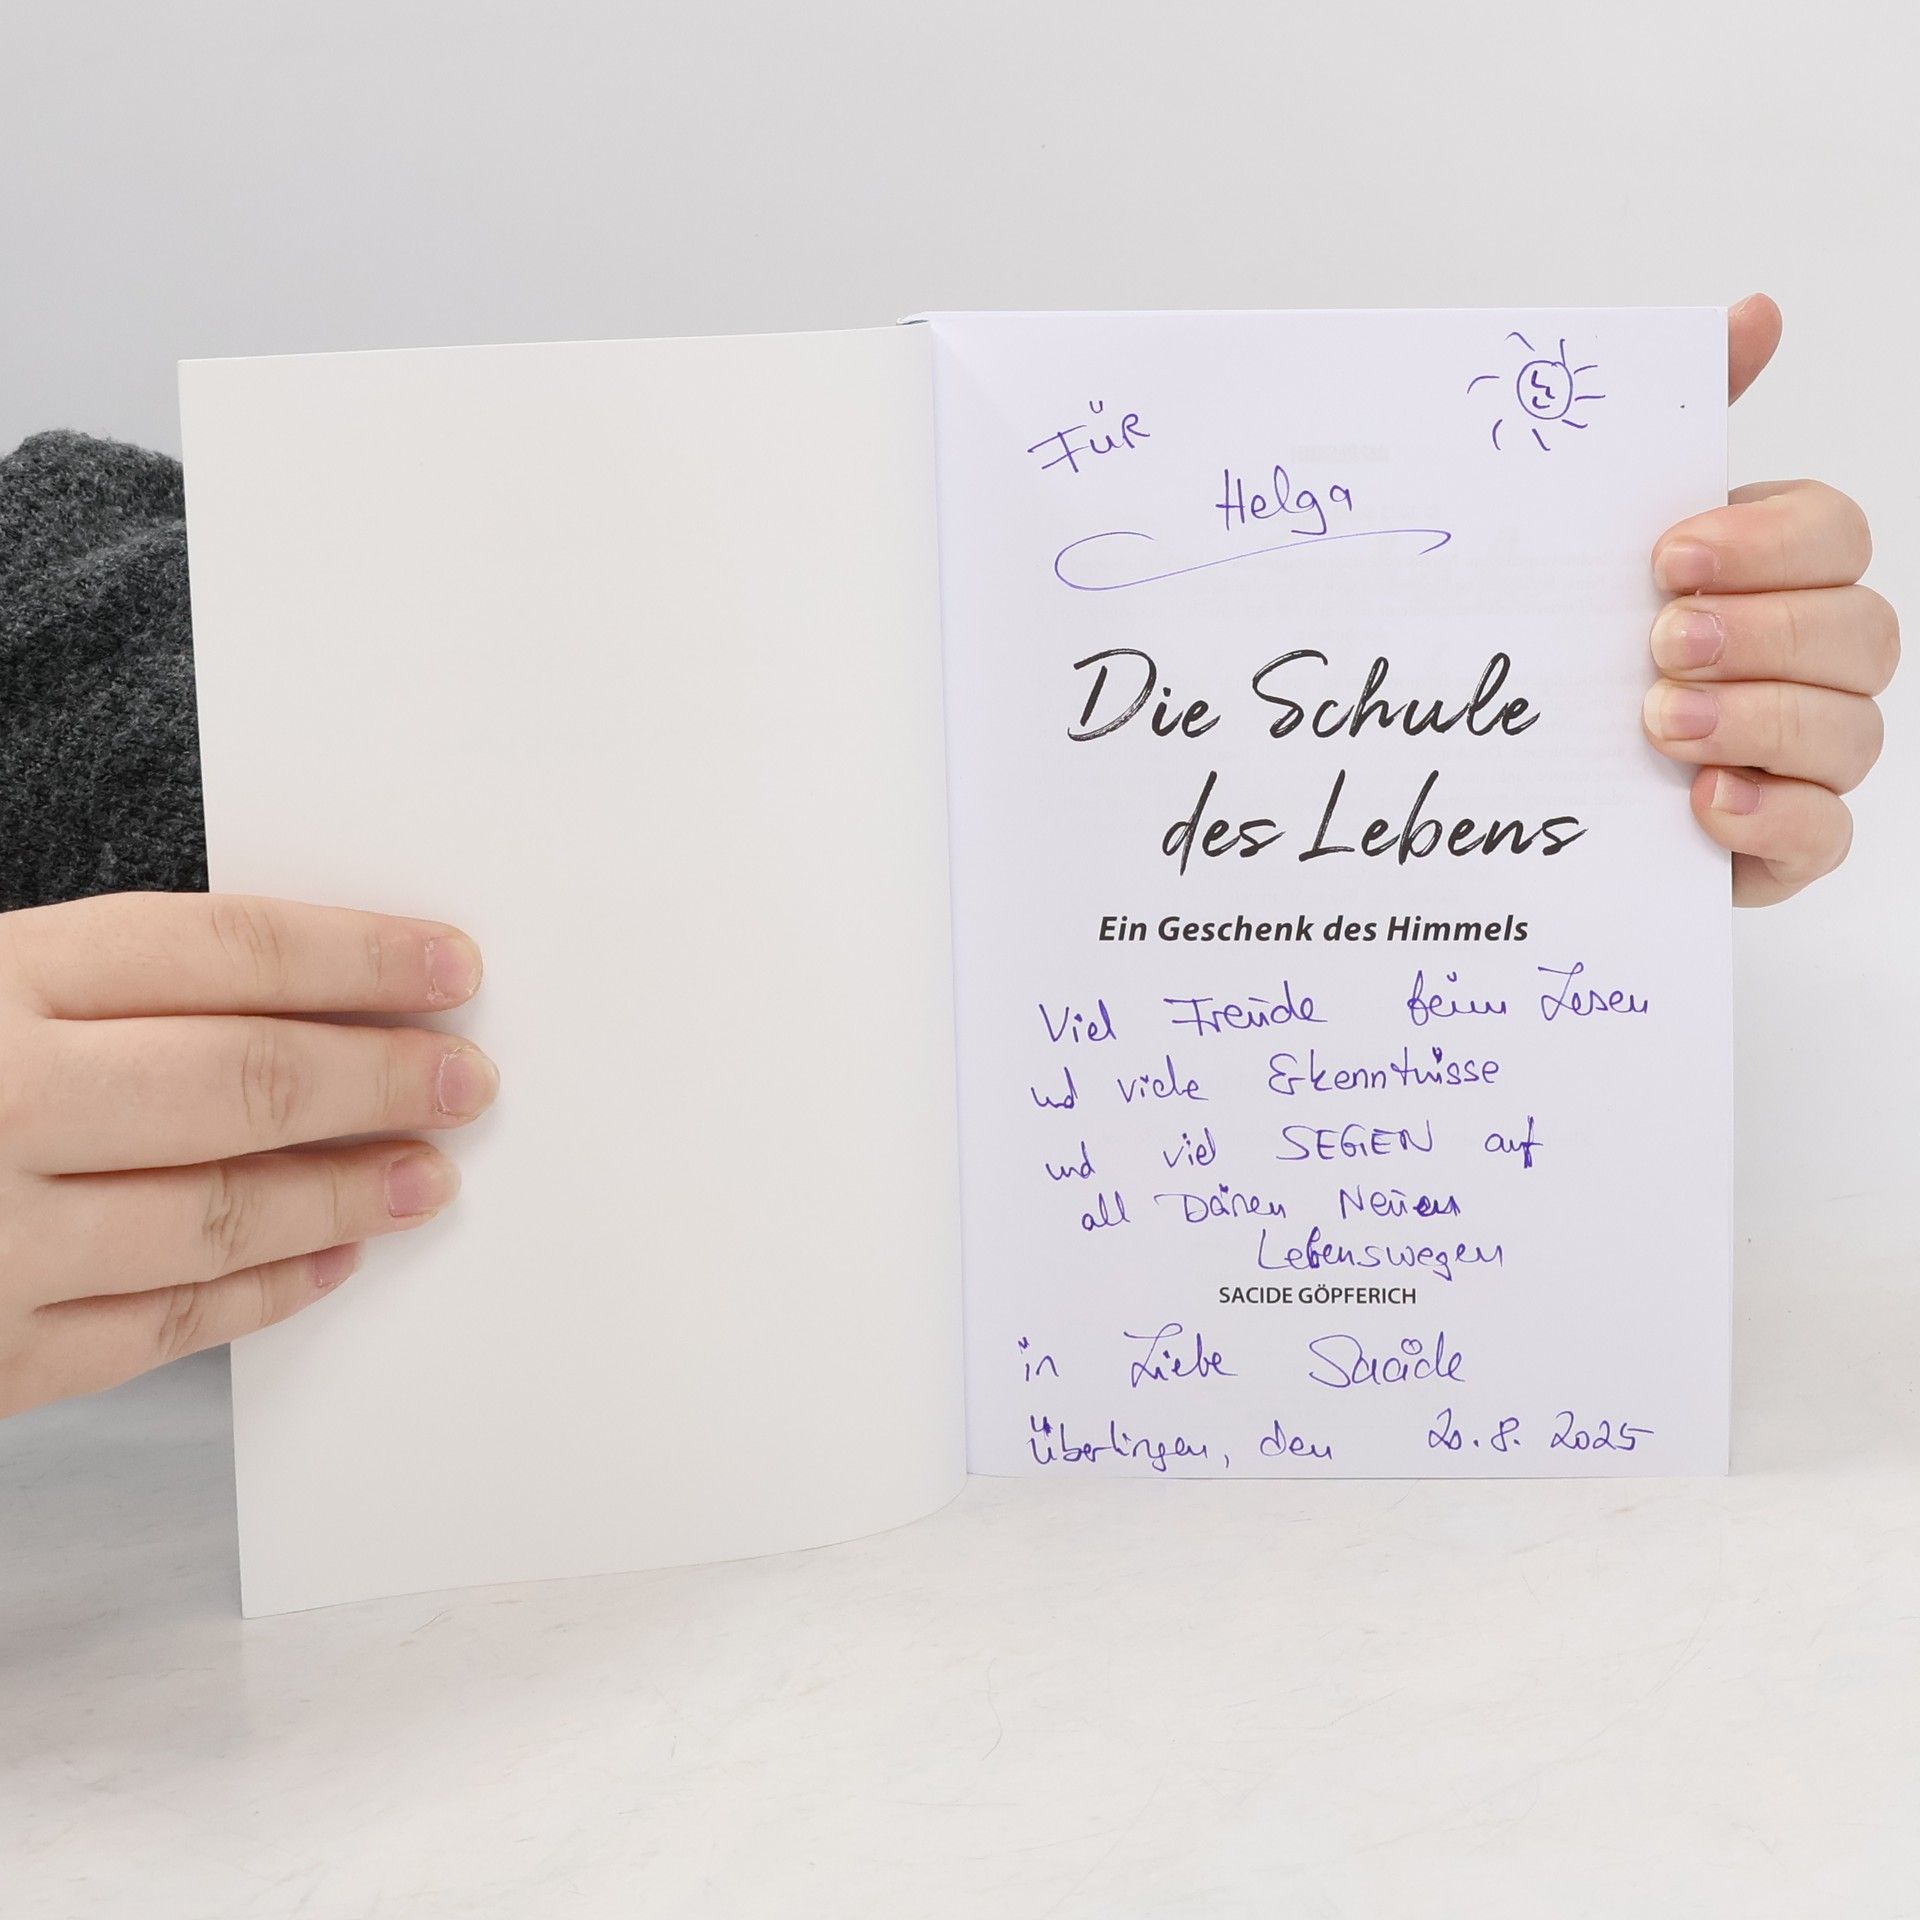 FÜR
Helga
Die Schule
des Lebens
Ein Geschenk des Himmels
Viel Freude beim Lesen
und viele Erkenntnisse
und viel SEGEN auf
all Deinen Neuen
Lebenswegen
SACIDE GÖPFERICH
in Liebe Sacide
Überlingen, den 20.8.2025